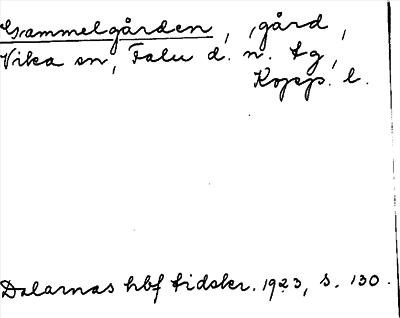 Gammelgården, gård,
Vika sn, Falu d. n. tg,
Kopp. l.
Dalarnas hbf tidskr. 1923, s. 130.